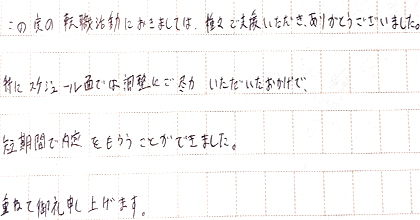 この度の転職活動におきましては、種々ご支援いただき、ありがとうございました。
特にスケジュール面では調整にご尽力いただいたおかげで、
短期間で内定をもらうことができました。
重ねて御礼申し上げます。